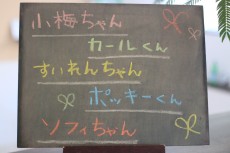 小梅ちゃん
カールくん
すいれんちゃん
ポッキーくん
ソフィちゃん